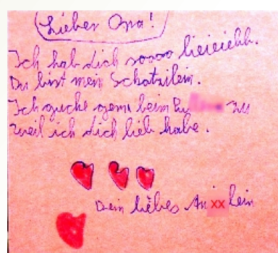 Lieber Opa!
Ich hab dich soooo lieieiehh.
Du bist mein Schatzilem.
Ich gucke gerne beim zu
weil ich dich lieb habe.
Dein liebes An xx lein